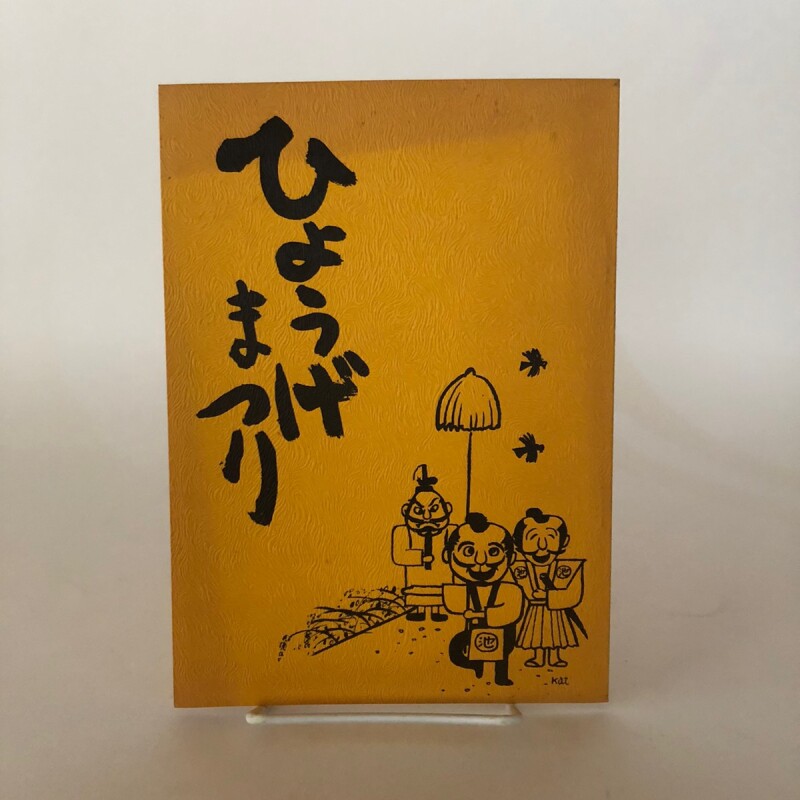 ひょうげ
まつり
池
池
Kat